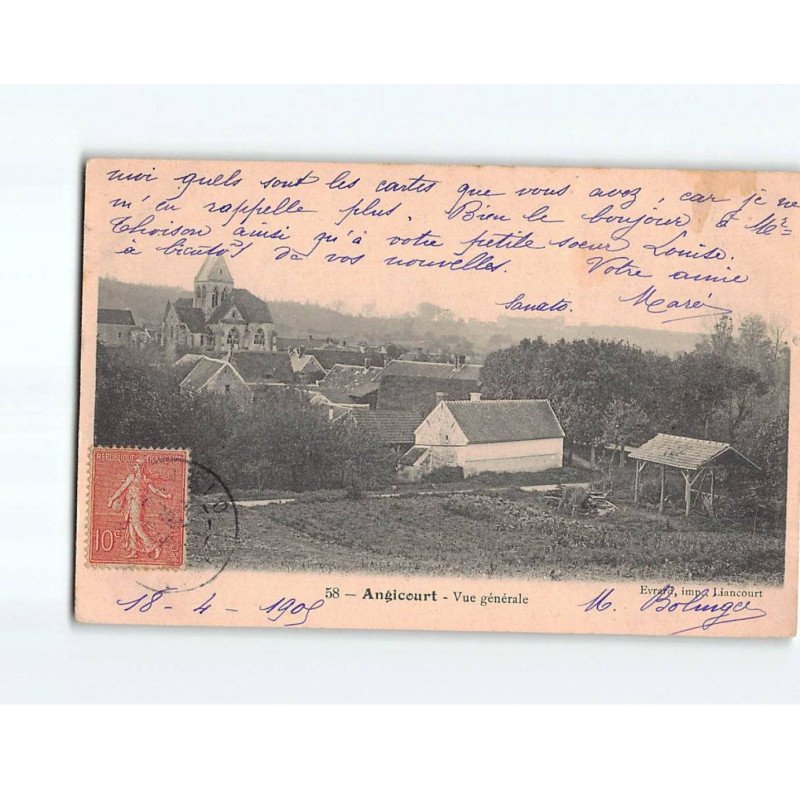 moi quels sont les cartes que vous avez, car je ne
m'en rappelle plus. Bien le bonjour à Me
Thoison ainsi qu'à votre petite sœur Louise.
à bientôt de vos nouvelles. Votre amie
Sanato. Maré
REPUBLIQUE FRANÇAISE
10c
58 - Angicourt - Vue générale
Evrard, imp., Liancourt
18 - 4 - 1905 M. Bolingue